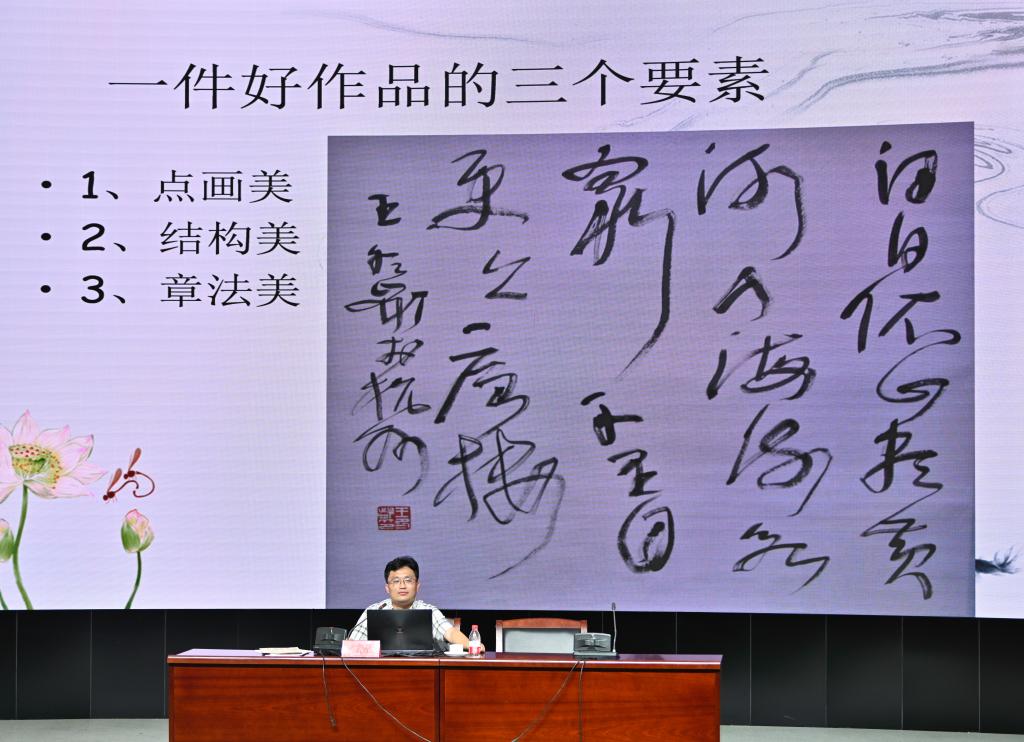 一件好作品的三个要素
1、点画美
2、结构美
3、章法美
白日依山尽黄
河入海流欲
窮千里目
更上一層樓
王冬齡 杭州